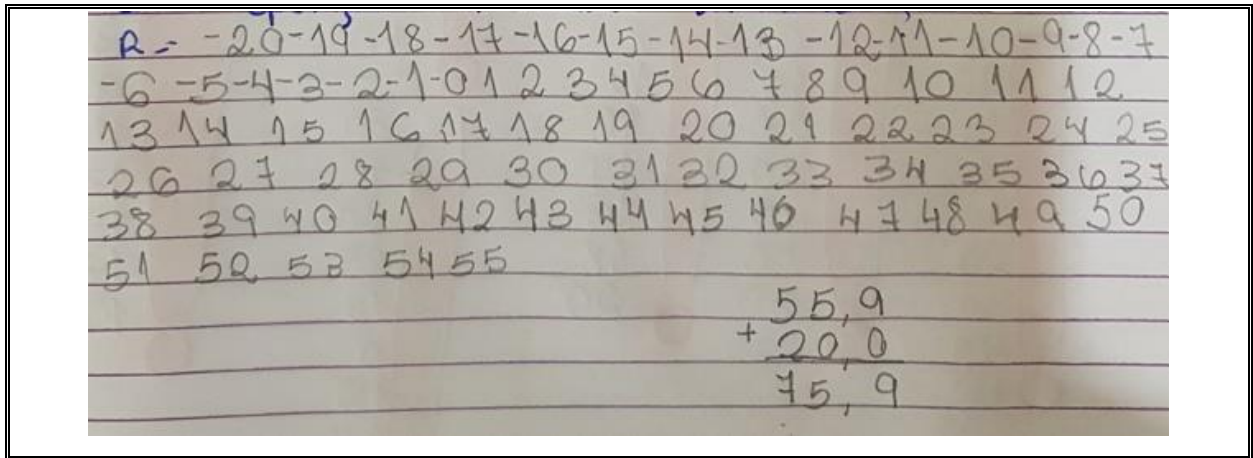 R - -20-19-18-17-16-15-14-13-12-11-10-9-8-7
-6-5-4-3-2-1-0 1 2 3 4 5 6 7 8 9 10 11 12
13 14 15 16 17 18 19 20 21 22 23 24 25
26 27 28 29 30 31 32 33 34 35 36 37
38 39 40 41 42 43 44 45 46 47 48 49 50
51 52 53 54 55
55,9
+ 20,0
75,9